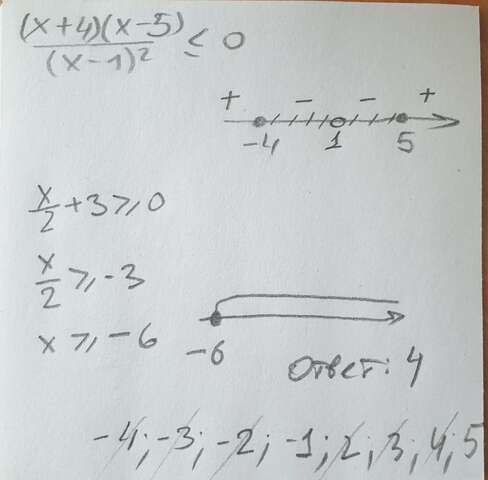 (x+4)(x-5)
(x-1)² ≤ 0
+ - - +
-4 1 5
x/2 + 3 ⩾ 0
x/2 ⩾ -3
x ⩾ -6
-6
Ответ: 4
-4; -3; -2; -1; 2; 3; 4; 5